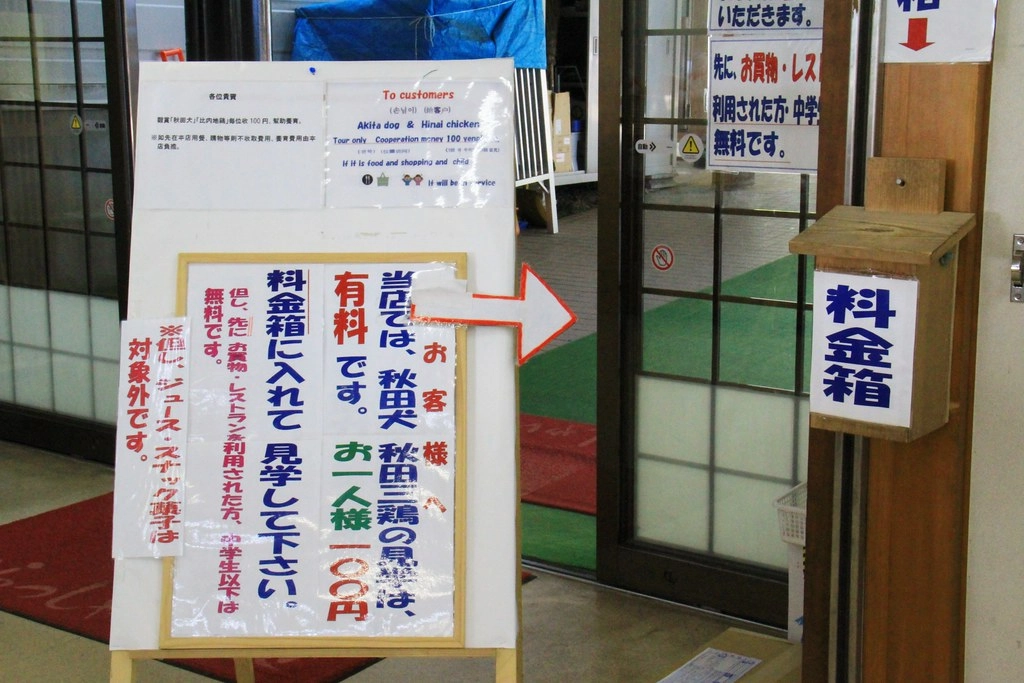 各位貴賓
To customers
(손님이) (给客户)
Akita dog & Hinai chicken
Tour only Cooperation money 100 yen
If it is food and shopping and child
It will be a service
お客様へ
当店では、秋田犬 秋田三鶏の見学は、
有料です。お一人様 一〇〇円
料金箱に入れて 見学して下さい。
但し、先に お買物・レストランを利用された方、中学生以下は
無料です。
※但し、ジュース・スナック菓子は
対象外です。
いただきます。
先に、お買物・レス
利用された方・中学
無料です。
箱
料金箱